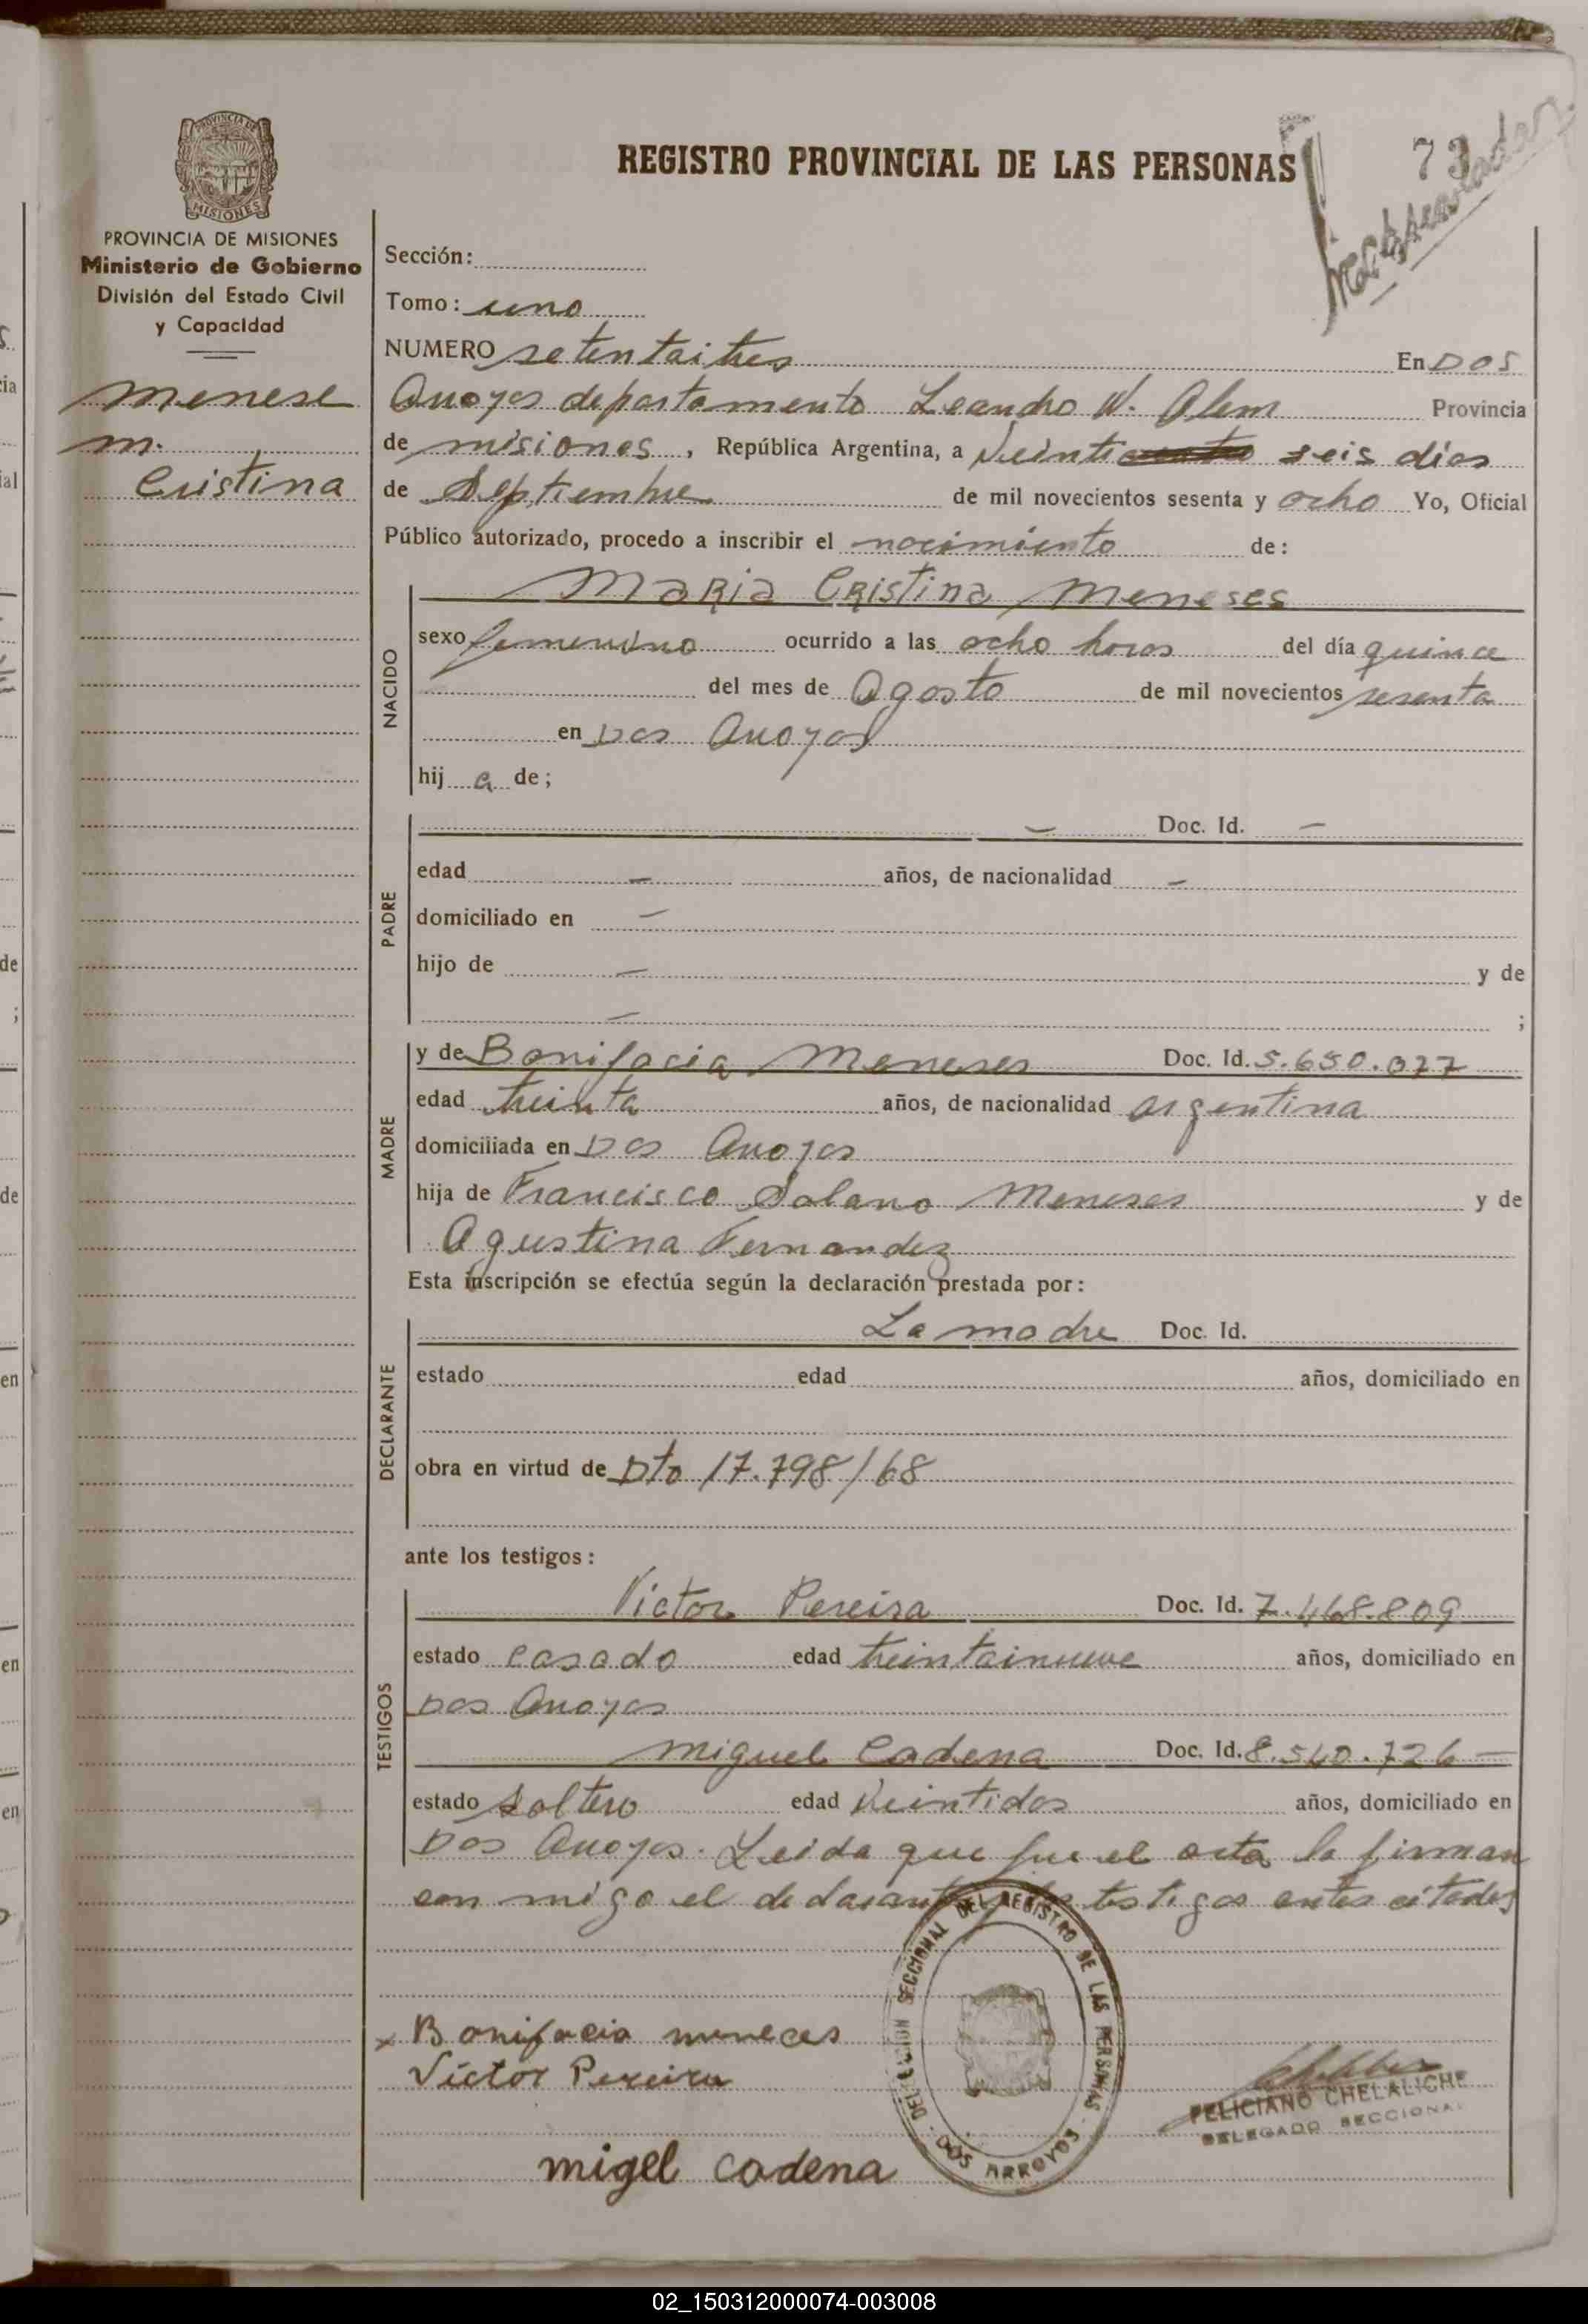 REGISTRO PROVINCIAL DE LAS PERSONAS
73
PROVINCIA DE
MISIONES
PROVINCIA DE MISIONES
Ministerio de Gobierno
División del Estado Civil
y Capacidad
Menese
M.
Cristina
Sección:
Tomo: uno
NUMERO setentaitres En Dos
Arroyos departamento Leandro N. Alem Provincia
de misiones, República Argentina, a Veinti seis dias
de Septiembre de mil novecientos sesenta y ocho Yo, Oficial
Público autorizado, procedo a inscribir el nacimiento de:
NACIDO
Maria Cristina Meneses
sexo femenino ocurrido a las ocho horas del día quince
del mes de Agosto de mil novecientos sesenta
en Dos Arroyos
hij a de;
PADRE
— Doc. Id. —
edad — años, de nacionalidad —
domiciliado en —
hijo de — y de
— ;
MADRE
y de Bonifacia Meneses Doc. Id. 5.650.077
edad treinta años, de nacionalidad argentina
domiciliada en Dos Arroyos
hija de Francisco Solano Meneses y de
Agustina Fernandez
Esta inscripción se efectúa según la declaración prestada por:
DECLARANTE
La madre Doc. Id.
estado edad años, domiciliado en
obra en virtud de Dto 17.798/68
ante los testigos:
TESTIGOS
Victor Pereira Doc. Id. 7.468.809
estado casado edad treintainueve años, domiciliado en
Dos Arroyos
Miguel Cadena Doc. Id. 8.540.726 —
estado soltero edad Veintidos años, domiciliado en
Dos Arroyos. Leida que fue el acta la firman
con migo el declarante testigos antes citados
DELEGACION SECCIONAL DEL REGISTRO DE LAS PERSONAS
DOS ARROYOS
x Bonifacia meneces
Victor Pereira
migel cadena
FELICIANO CHELALICHE
DELEGADO SECCIONAL
02_150312000074-003008